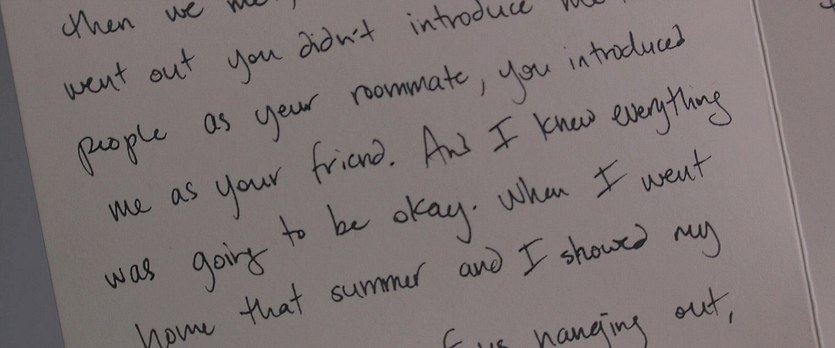 then we
went out you didn't introduce
people as your roommate, you introduced
me as your friend. And I knew everything
was going to be okay. When I went
home that summer and I showed my
us hanging out,